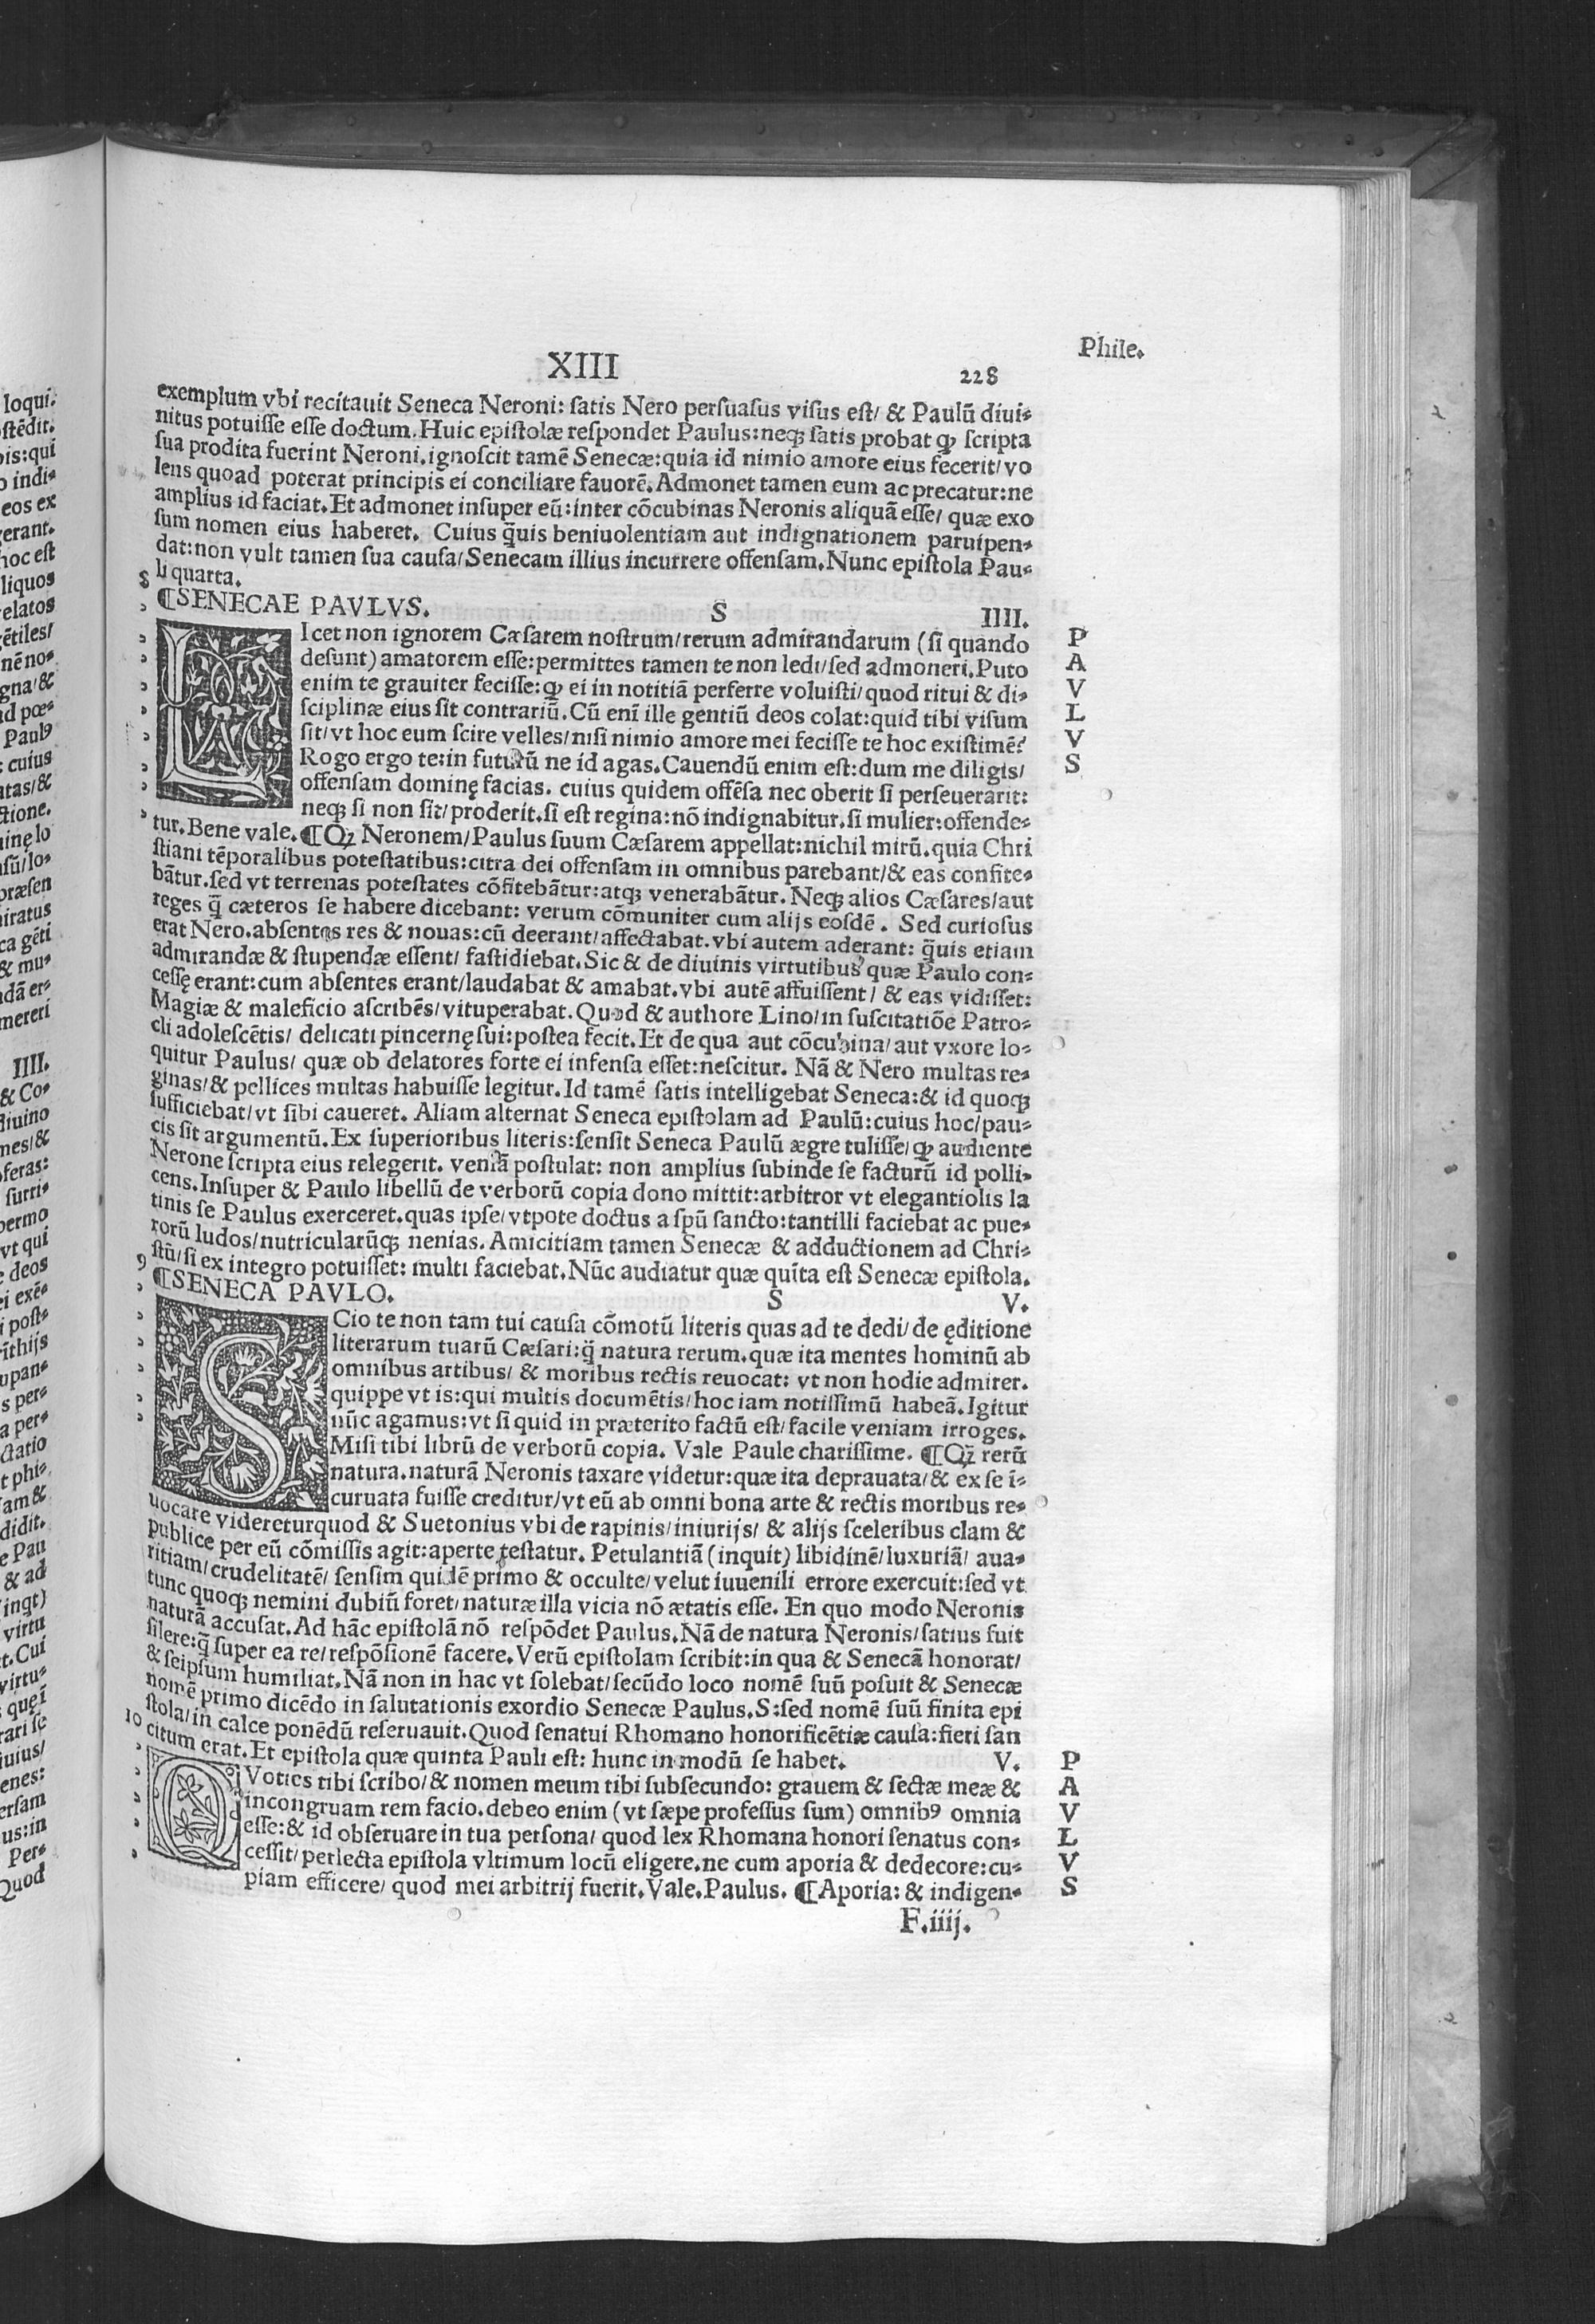 Phile.
XIII
228
exemplum vbi recitauit Seneca Neroni: satis Nero persuasus visus est/ & Paulū diui-
nitus potuisse esse doctum. Huic epistolæ respondet Paulus: neqꝫ satis probat ꝙ scripta
sua prodita fuerint Neroni. ignoscit tamē Senecæ: quia id nimio amore eius fecerit/ vo
lens quoad poterat principis ei conciliare fauorē. Admonet tamen eum ac precatur: ne
amplius id faciat. Et admonet insuper eū: inter cōcubinas Neronis aliquā esse/ quæ exo
sum nomen eius haberet. Cuius q̄uis beniuolentiam aut indignationem paruipen-
dat: non vult tamen sua causa/ Senecam illius incurrere offensam. Nunc epistola Pau-
li quarta.
8
¶SENECAE PAVLVS. S IIII.
LIcet non ignorem Cæsarem nostrum/ rerum admirandarum (si quando
desunt) amatorem esse: permittes tamen te non ledi/ sed admoneri. Puto
enim te grauiter fecisse: ꝙ ei in notitiā perferre voluisti/ quod ritui & di-
sciplinæ eius sit contrariū. Cū enī ille gentiū deos colat: quid tibi visum
sit/ vt hoc eum scire velles/ nisi nimio amore mei fecisse te hoc existimē?
Rogo ergo te: in futurū ne id agas. Cauendū enim est: dum me diligis/
offensam dominę facias. cuius quidem offēsa nec oberit si perseuerarit:
neqꝫ si non sit/ proderit. si est regina: nō indignabitur. si mulier: offende-
PAVLVS
tur. Bene vale. ¶Qꝫ Neronem/ Paulus suum Cæsarem appellat: nichil mirū. quia Chri
stiani tēporalibus potestatibus: citra dei offensam in omnibus parebant/ & eas confite-
bātur. sed vt terrenas potestates cōfitebātur: atqꝫ venerabātur. Neqꝫ alios Cæsares/ aut
reges q̄ cæteros se habere dicebant: verum cōmuniter cum alijs eosdē. Sed curiosus
erat Nero. absentes res & nouas: cū deerant/ affectabat. vbi autem aderant: q̄uis etiam
admirandæ & stupendæ essent/ fastidiebat. Sic & de diuinis virtutibus quæ Paulo con-
cessę erant: cum absentes erant/ laudabat & amabat. vbi autē affuissent/ & eas vidisset:
Magiæ & maleficio ascribēs/ vituperabat. Quod & authore Lino/ in suscitatiōe Patro-
cli adolescētis/ delicati pincernę sui: postea fecit. Et de qua aut cōcubina/ aut vxore lo-
quitur Paulus/ quæ ob delatores forte ei infensa esset: nescitur. Nā & Nero multas re-
ginas/ & pellices multas habuisse legitur. Id tamē satis intelligebat Seneca: & id quoqꝫ
sufficiebat/ vt sibi caueret. Aliam alternat Seneca epistolam ad Paulū: cuius hoc/ pau-
cis sit argumentū. Ex superioribus literis: sensit Seneca Paulū ægre tulisse/ ꝙ audiente
Nerone scripta eius relegerit. veniā postulat: non amplius subinde se facturū id polli-
cens. Insuper & Paulo libellū de verborū copia dono mittit: arbitror vt elegantiolis la
tinis se Paulus exerceret. quas ipse/ vtpote doctus a spū sancto: tantilli faciebat ac pue-
rorū ludos/ nutricularūqꝫ nenias. Amicitiam tamen Senecæ & adductionem ad Chri-
stū/ si ex integro potuisset: multi faciebat. Nūc audiatur quæ quīta est Senecæ epistola.
9
¶SENECA PAVLO. S V.
SCio te non tam tui causa cōmotū literis quas ad te dedi/ de ęditione
literarum tuarū Cæsari: q̄ natura rerum. quæ ita mentes hominū ab
omnibus artibus/ & moribus rectis reuocat: vt non hodie admirer.
quippe vt is: qui multis documētis/ hoc iam notissimū habeā. Igitur
nūc agamus: vt si quid in præterito factū est/ facile veniam irroges.
Misi tibi librū de verborū copia. Vale Paule charissime. ¶Qꝫ rerū
natura. naturā Neronis taxare videtur: quæ ita deprauata/ & ex se ī-
curuata fuisse creditur/ vt eū ab omni bona arte & rectis moribus re-
uocare videreturquod & Suetonius vbi de rapinis/ iniurijs/ & alijs sceleribus clam &
publice per eū cōmissis agit: aperte testatur. Petulantiā (inquit) libidinē/ luxuriā/ aua-
ritiam/ crudelitatē/ sensim quidē primo & occulte/ velut iuuenili errore exercuit: sed vt
tunc quoqꝫ nemini dubiū foret/ naturæ illa vicia nō ætatis esse. En quo modo Neronis
naturā accusat. Ad hāc epistolā nō respōdet Paulus. Nā de natura Neronis/ satius fuit
silere: q̄ super ea re/ respōsionē facere. Verū epistolam scribit: in qua & Senecā honorat/
& seipsum humiliat. Nā non in hac vt solebat/ secūdo loco nomē suū posuit & Senecæ
nomē primo dicēdo in salutationis exordio Senecæ Paulus. S: sed nomē suū finita epi
stola/ in calce ponēdū reseruauit. Quod senatui Rhomano honorificētiæ causa: fieri san
10
citum erat. Et epistola quæ quinta Pauli est: hunc in modū se habet. V.
QVoties tibi scribo/ & nomen meum tibi subsecundo: grauem & sectæ meæ &
incongruam rem facio. debeo enim (vt sæpe professus sum) omnibꝰ omnia
esse: & id obseruare in tua persona/ quod lex Rhomana honori senatus con-
cessit/ perlecta epistola vltimum locū eligere. ne cum aporia & dedecore: cu-
piam efficere/ quod mei arbitrij fuerit. Vale. Paulus. ¶Aporia: & indigen-
PAVLVS
F.iiij.